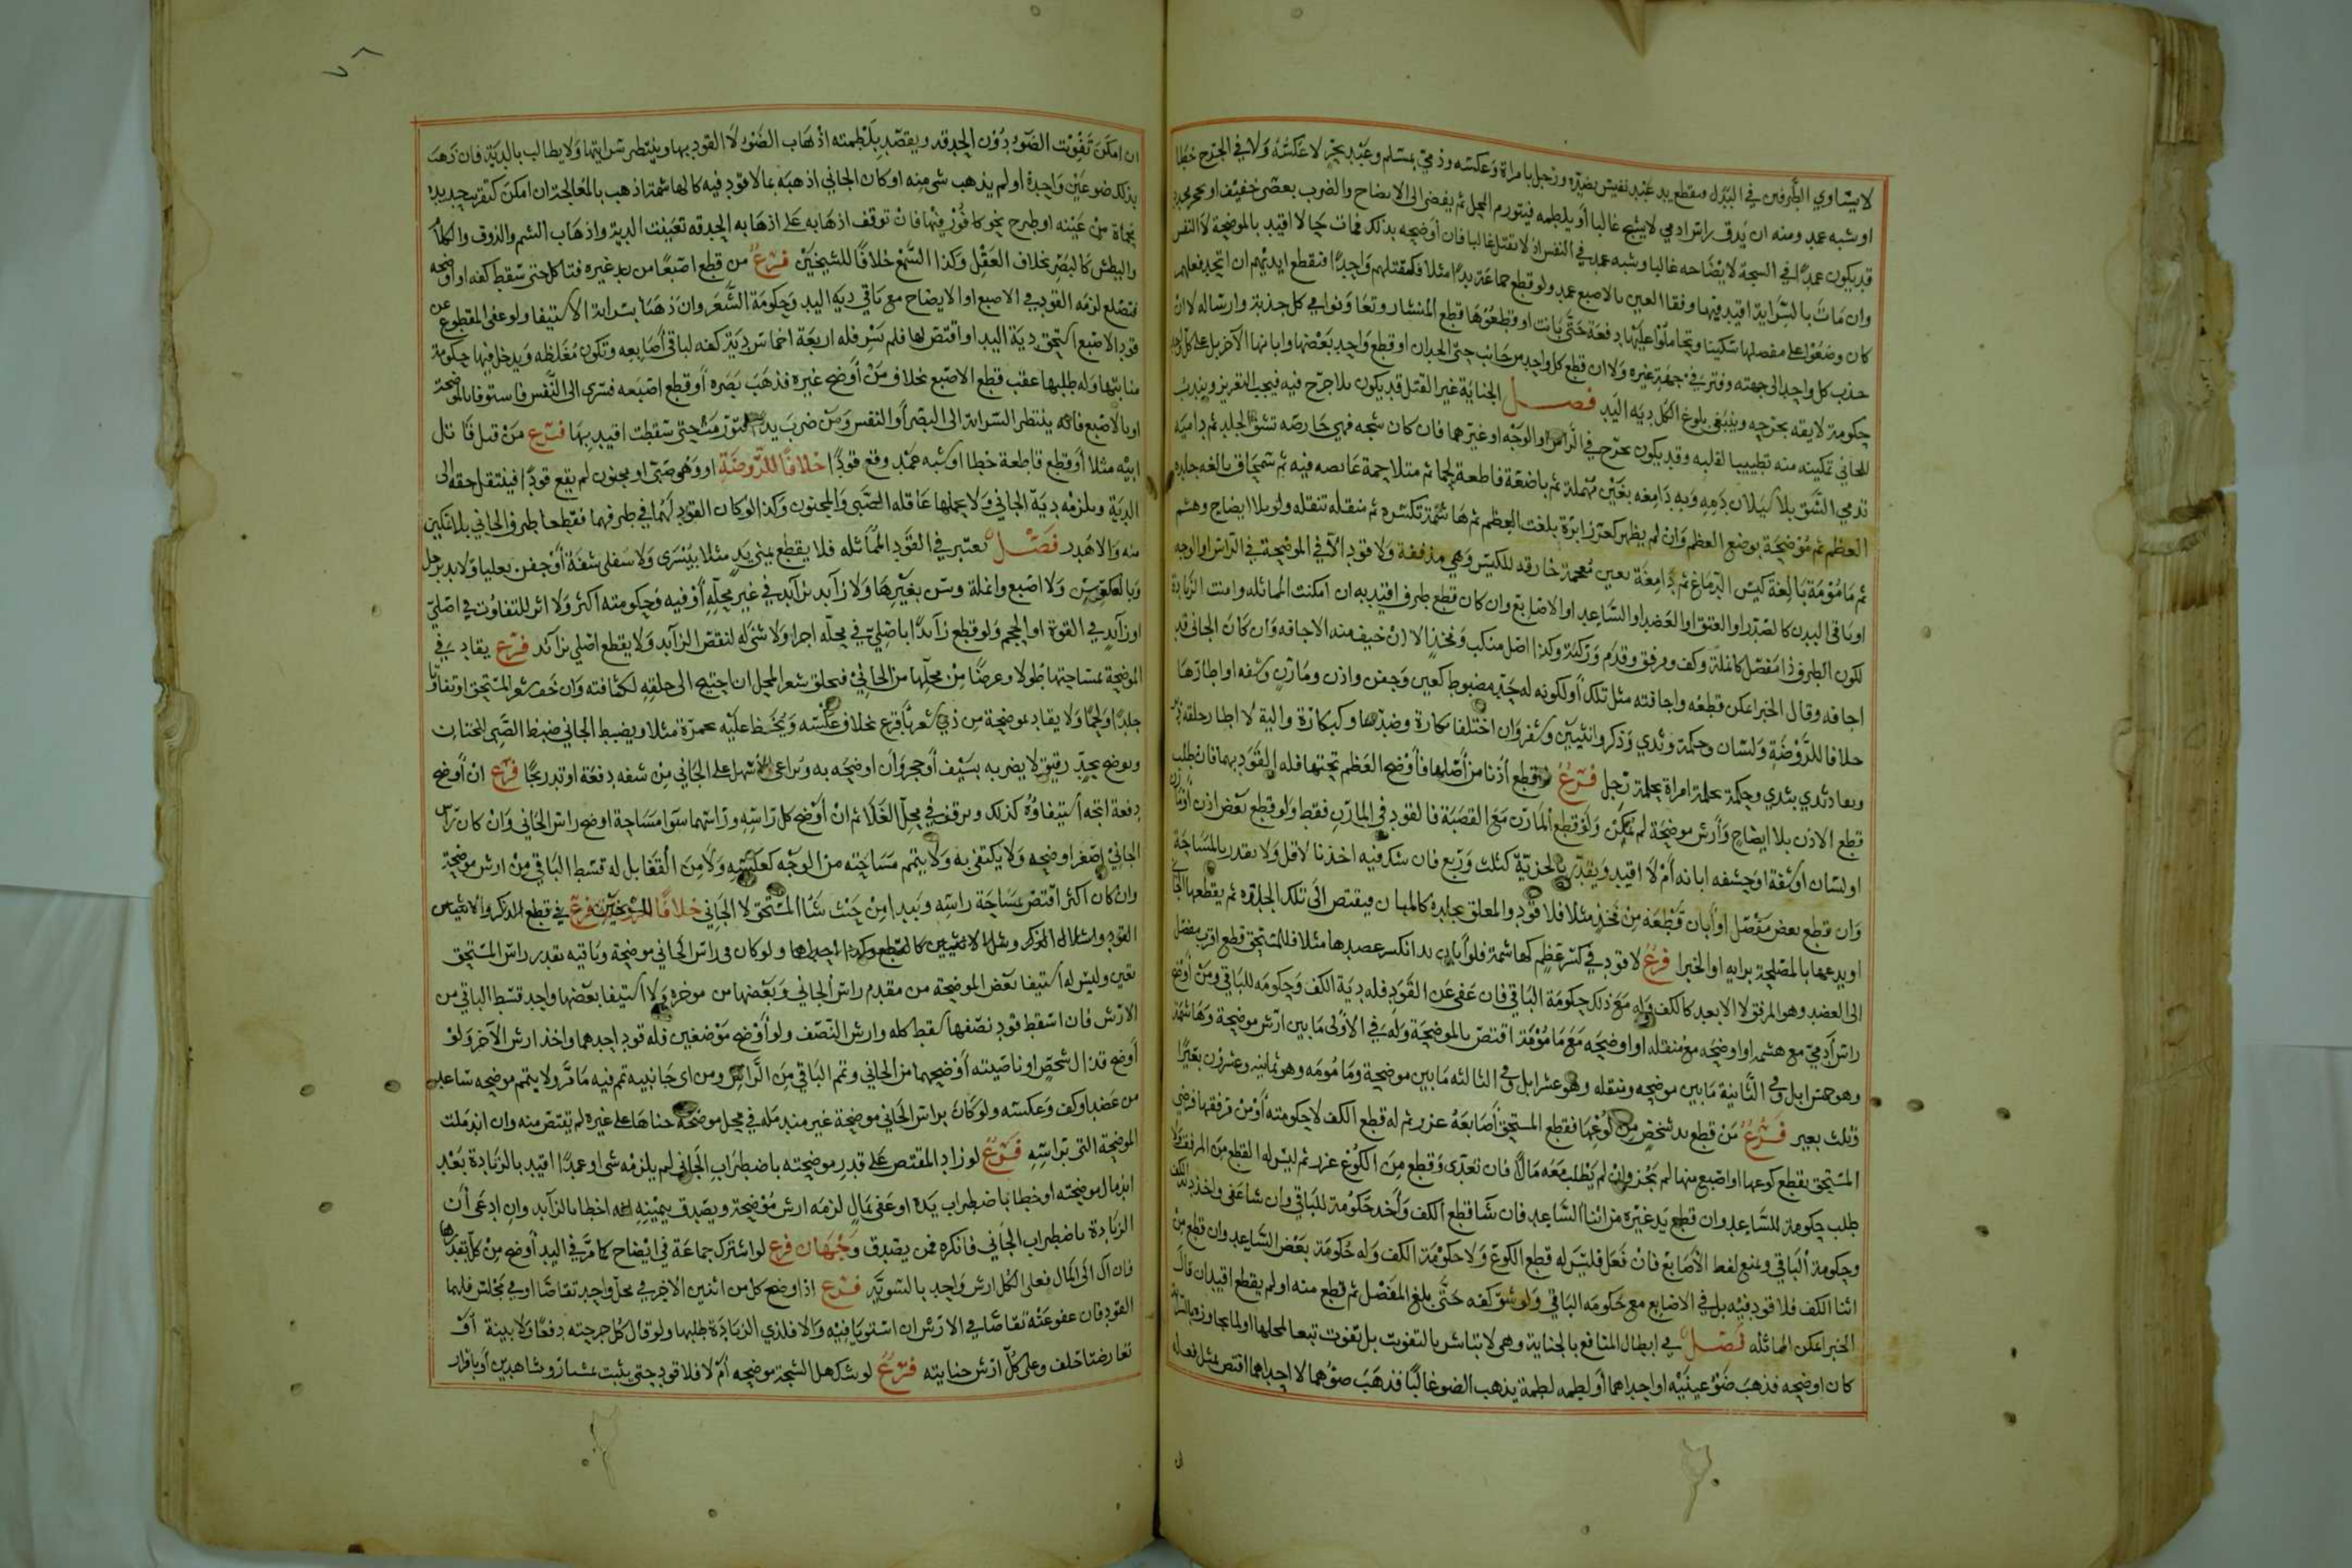 لا يساوي الطرفين في البدل فيقطع يد عبد نفيس بضده ورجل بامراة وعكسه وذمي بمسلم وعبد بحر لا عكسه ولا في الجرح خطا
او شبه عمد ومنه ان يدق راس ادمي لا يشج غالبا او يلطمه فيتورم المحل ثم يفضي الى الايضاح والضرب بعصى خفيف او حجر محدد
قد يكون عمدا في الشجة لايضاحه غالبا وشبه عمد في النفس اذ لا تقتل غالبا فان اوضحه بذلك فمات حالا اقيد بالموضحة لا النفس
وان مات بالسراية اقيد فيها وفقا العين بالاصبع عمد ولو قطع جماعة يدا مثلا فكمقتلهم واحدا فتقطع ايديهم ان اتحد فعلهم
كان وضعوا على مفصلها سكينا وتحاملوا عليها دفعة حتى بانت او قطعوها قطع المنشار وتعاونوا في كل جذبة وارساله لا ان
جذب كل واحد الى جهته وفتر في جهة غيره ولا ان قطع كل واحد من جانب حتى الحدان او قطع واحد بعضها وابانها الآخر بل على كل
حكومة لايقه بجرحه وينبغي بلوغ الكل دية اليد فصل الجناية غير القتل قد يكون بلا جرح فيه فيجب التعزير ويندب
للجاني تمكينه منه تطييبا لقلبه وقد يكون بجرح في الراس او الوجه او غيرهما فان كان شجه فهي حارصه تشق الجلد ثم داميه
تدمي الشق بلا سيلان دم وبه دامعه بغين مهملة ثم باضعة قاطعة لحما ثم متلاحمة غايصه فيه ثم سمحاق بالغه جلده
العظم ثم موضحة بوضح العظم وان لم يظهر كغرز ابرة بلغت العظم ثم هاشمة تكسره ثم منقله تنقله ولو بلا ايضاح وهشم
ثم مامومة بالغة كيس الدماغ ثم دامغة بغين معجمة خارقه للكيس وهي مذففة ولا قود الا في الموضحة في الراس او الوجه
او باقي البدن كالصدر او العنق او العضد او الساعد او الاصابع وان كان قطع طرف اقيد به ان امكنت المماثله وامنت الزيادة
لكون الطرف ذا مفصل كانملة وكف ومرفق وقدم وركبة وكذا اصل منكب وفخذ الا ان خيف منه الاجافه وان كان الجاني قد
اجافه وقال الخبرا يمكن قطعه واجافته مثل تلك او لكونه له حد مضبوط كعين وجفن واذن ومارن وشفه او اطارها
خلافا للروضة ولسان وحلمة وثدي وذكر وانثيين وشفر وان اختلفا بكارة وضدها وكبكارة والية لا اطار حلقه
ويقاد ثدي بثدي وحلمة بحلمة امراة بحلمة رجل فرع قطع اذنا من اصلها فاوضح العظم تحتها فله القود بهما فان طلب
قطع الاذن بلا ايضاح وارش موضحة لم يمكن ولو قطع المارن مع القصبة فالقود في المارن فقط ولو قطع بعض اذن او مارن
او لسان او شفة او حشفه ابانه ام لا اقيد ويقدر بالجزئية كثلث وربع فان شك فيه اخذنا لاقل ولا يقدر بالمساحة
وان قطع بعض مفصل او ابان قطعة من فخذ مثلا فلا قود والمعلق بجلده كالمبان فيقتص الى تلك الجلده ثم يقطعها الجاني
او يدعها بالمصلحة برايه او الخبرا فرع لا قود في كسر عظم كهاشمة فلو ابان يدا انكسر عضدها مثلا فللمستحق قطع اقرب مفصل
الى العضد وهو المرفق لا الابعد كالكف وله مع ذلك حكومة الباقي فان عفى عن القود فله دية الكف وحكومه للباقي ومن اوضح
راس آدمي مع هشمه او اوضحه مع منقله او اوضحه مع مامومة اقتص بالموضحة وله في الاولى ما بين ارش موضحة وهاشمة
وهو خمس ابل وفي الثانية ما بين موضحه ومنقله وهو عشر ابل وفي الثالثه ما بين موضحة ومامومه وهو ثمانيه وعشرون بعيرا
وثلث بعير فرع من قطع يد شخص من كوعها فقطع المستحق اصابعه عزر ثم له قطع الكف لا حكومته او من مرفقها فرضي
المستحق بقطع كوعها او اصبع منها لم يجز وان لم يطلب معه مالا فان تعدى وقطع من الكوع عزر ثم ليس له القطع من المرفق ولا
طلب حكومة للساعد وان قطع يد غيره من اثنا الساعد فان شا قطع الكف واخذ حكومة للباقي وان شا عفى واخذ دية الكف
وحكومة الباقي ومنع لقط الاصابع فان فعل فليس له قطع الكوع ولا حكومة الكف وله حكومة بعض الساعد وان قطع من
اثنا الكف فلا قود فيه بل في الاصابع مع حكومه الباقي ولو شق كفه حتى بلغ المفصل ثم قطع منه او لم يقطع اقيد ان قال
الخبرا يمكن المماثله فصل في ابطال المنافع بالجناية وهي لا تباشر بالتفويت بل تفوت تبعا لمحلها او لما يجاورها بالسراية
كان اوضحه فذهب ضو عينيه او احداهما او لطمه لطمة يذهب الضو غالبا فذهب ضوهما لا احداهما اقتص بمثل فعله
ان امكن تفويت الضو دون الحدقه ويقصد بلطمته اذهاب الضو لا القود بها وينتظر سرايتها ولا يطالب بالدية فان ذهب
بذلك ضو عين واحدة او لم يذهب شي منه او كان الجاني اذهبه بما لا قود فيه كالهاشمة اذهب بالمعالجة ان امكن كتقريب حديده
محماة من عينه او طرح نحو كافور فيها فان توقف اذهابه على اذهابه الحدقه تعينت الدية واذهاب الشم والذوق والكلام
والبطش كالبصر بخلاف العقل وكذا السمع خلافا للشيخين فرع من قطع اصبعا من يد غيره فتاكل حتى سقط كفه او اوضحه
فتصلع لزمه القود في الاصبع او الايضاح مع باقي ديه اليد وحكومة الشعر وان ذهبا بسراية الاستيفا ولو عفى المقطوع عن
قود الاصبع استحق دية اليد او اقتص لها فلم يسر فله اربعة اخماس دية كفه لباقي اصابعه وتكون مغلظه ويدخل فيها حكومة
منابتها وله طلبها عقب قطع الاصبع بخلاف من اوضح غيره فذهب بصره او قطع اصبعه فسرى الى النفس فاستوفا بالموضحة
او بالاصبع فانه ينتظر السراية الى البصر او النفس ومن ضرب يد فتورمت حتى سقطت اقيد بها فرع من قتل قاتل
ابيه مثلا او قطع قاطعة خطا او شبه عمد وقع قودا خلافا للروضة او وهو صبي او مجنون لم يقع قودا فينتقل حقه الى
الدية ويلزمه دية الجاني ولا يحملها عاقله الصبي والمجنون وكذا لو كان القود لهما في طرفهما فقطعا طرف الجاني بلا تمكين
منه والا هدر فصل يعتبر في القود المماثله فلا يقطع يمنى يد مثلا بيسرى ولا سفلى شفة او جفن بعليا ولا يد برجل
وبالعكس ولا اصبع وانملة وسن بغيرها ولا زايد بزايد في غير محله او فيه وحكومته اكثر ولا اثر للتفاوت في اصلي
او زايد في القوة او الحجم ولو قطع زايدا باصلي في محله اجزا ولا شي له لنقص الزايد ولا يقطع اصلي بزائد فرع يقاد في
الموضحة بمساحتها طولا وعرضا من محلها من الجاني فيحلق شعر المحل ان احتيج الى حلقه لكثافته وان خف شعر المستحق او تفاوتا
جلدا ولحما ولا يقاد بموضحة من ذي شعر باقرع بخلاف عكسه ويخط عليه بحمرة مثلا ويضبط الجاني ضبط الصبي للختان
ويوضح بحد رقيق لا يضربه بسيف او حجر وان اوضحه به ويراعى الاسهل على الجاني من شقه دفعة او تدريجا فرع ان اوضح
دفعة اتجه استيفاؤه كذلك ويرفق في محل الغلا ثم ان اوضح كل راسه وراسهما سوا مساحة اوضح راس الجاني وان كان راس
الجاني اصغر اوضحه ولا يكتفى به ولا يتمم مساحته من الوجه كعكسه ولا من القفا بل له قسط الباقي من ارش موضحة
وان كان اكثر اقتص بمساحة راسه ويبدا من حيث شا المستحق لا الجاني خلافا للشيخين فرع في قطع الذكر والانثيين
القود واشلال الذكر وشلا الانثيين كالقطع وكذا احداهما ولو كان في راس الجاني موضحة وباقيه بقدر راس المستحق
تعين وليس له استيفا بعض الموضحة من مقدم راس الجاني وبعضها من موخره ولا استيفا بعضها واخذ قسط الباقي من
الارش فان اسقط قود نصفها سقط كله وارش النصف ولو اوضح موضعين فله قود احدهما واخذ ارش الآخر ولو
اوضح قذال شخص او ناصيته اوضحهما من الجاني وتمم الباقي من الراس ومن اي جانبيه تمم فيه ما مر ولا يتمم موضحه ساعد
من عضد او كف وعكسه ولو كان براس الجاني موضحة غير مندمله في محل موضحة جناها على غيره لم يقتص منه وان اندملت
الموضحة التي براسه فرع لو زاد المقتص على قدر موضحته باضطراب الجاني لم يلزمه شي او عمدا اقيد بالزيادة بعد
اندمال موضحته او خطا باضطراب يده او عفى بمال لزمه ارش موضحة ويصدق بيمينه انه اخطا بالزايد وان ادعى ان
الزيادة باضطراب الجاني فانكره فمن يصدق وجهان فرع لو اشترك جماعة في ايضاح كما مر في اليد اوضح من كل بقدرها
فان آل الى المال فعلى الكل ارش واحد بالسوية فرع اذا اوضح كل من اثنين الاخر في محل واحد تقاصا او في مجلس فلهما
القود فان عفو عنه تقاصا في الارش ان استويا فيه والا فلذي الزيادة طلبها ولو قال كل جرحته دفعا ولا بينة او
تعارضتا حلف وعلى كل ارش جنايته فرع لو شك هل الشجة موضحه ام لا فلا قود حتى يثبت بمسبار وشاهدين او باقرار